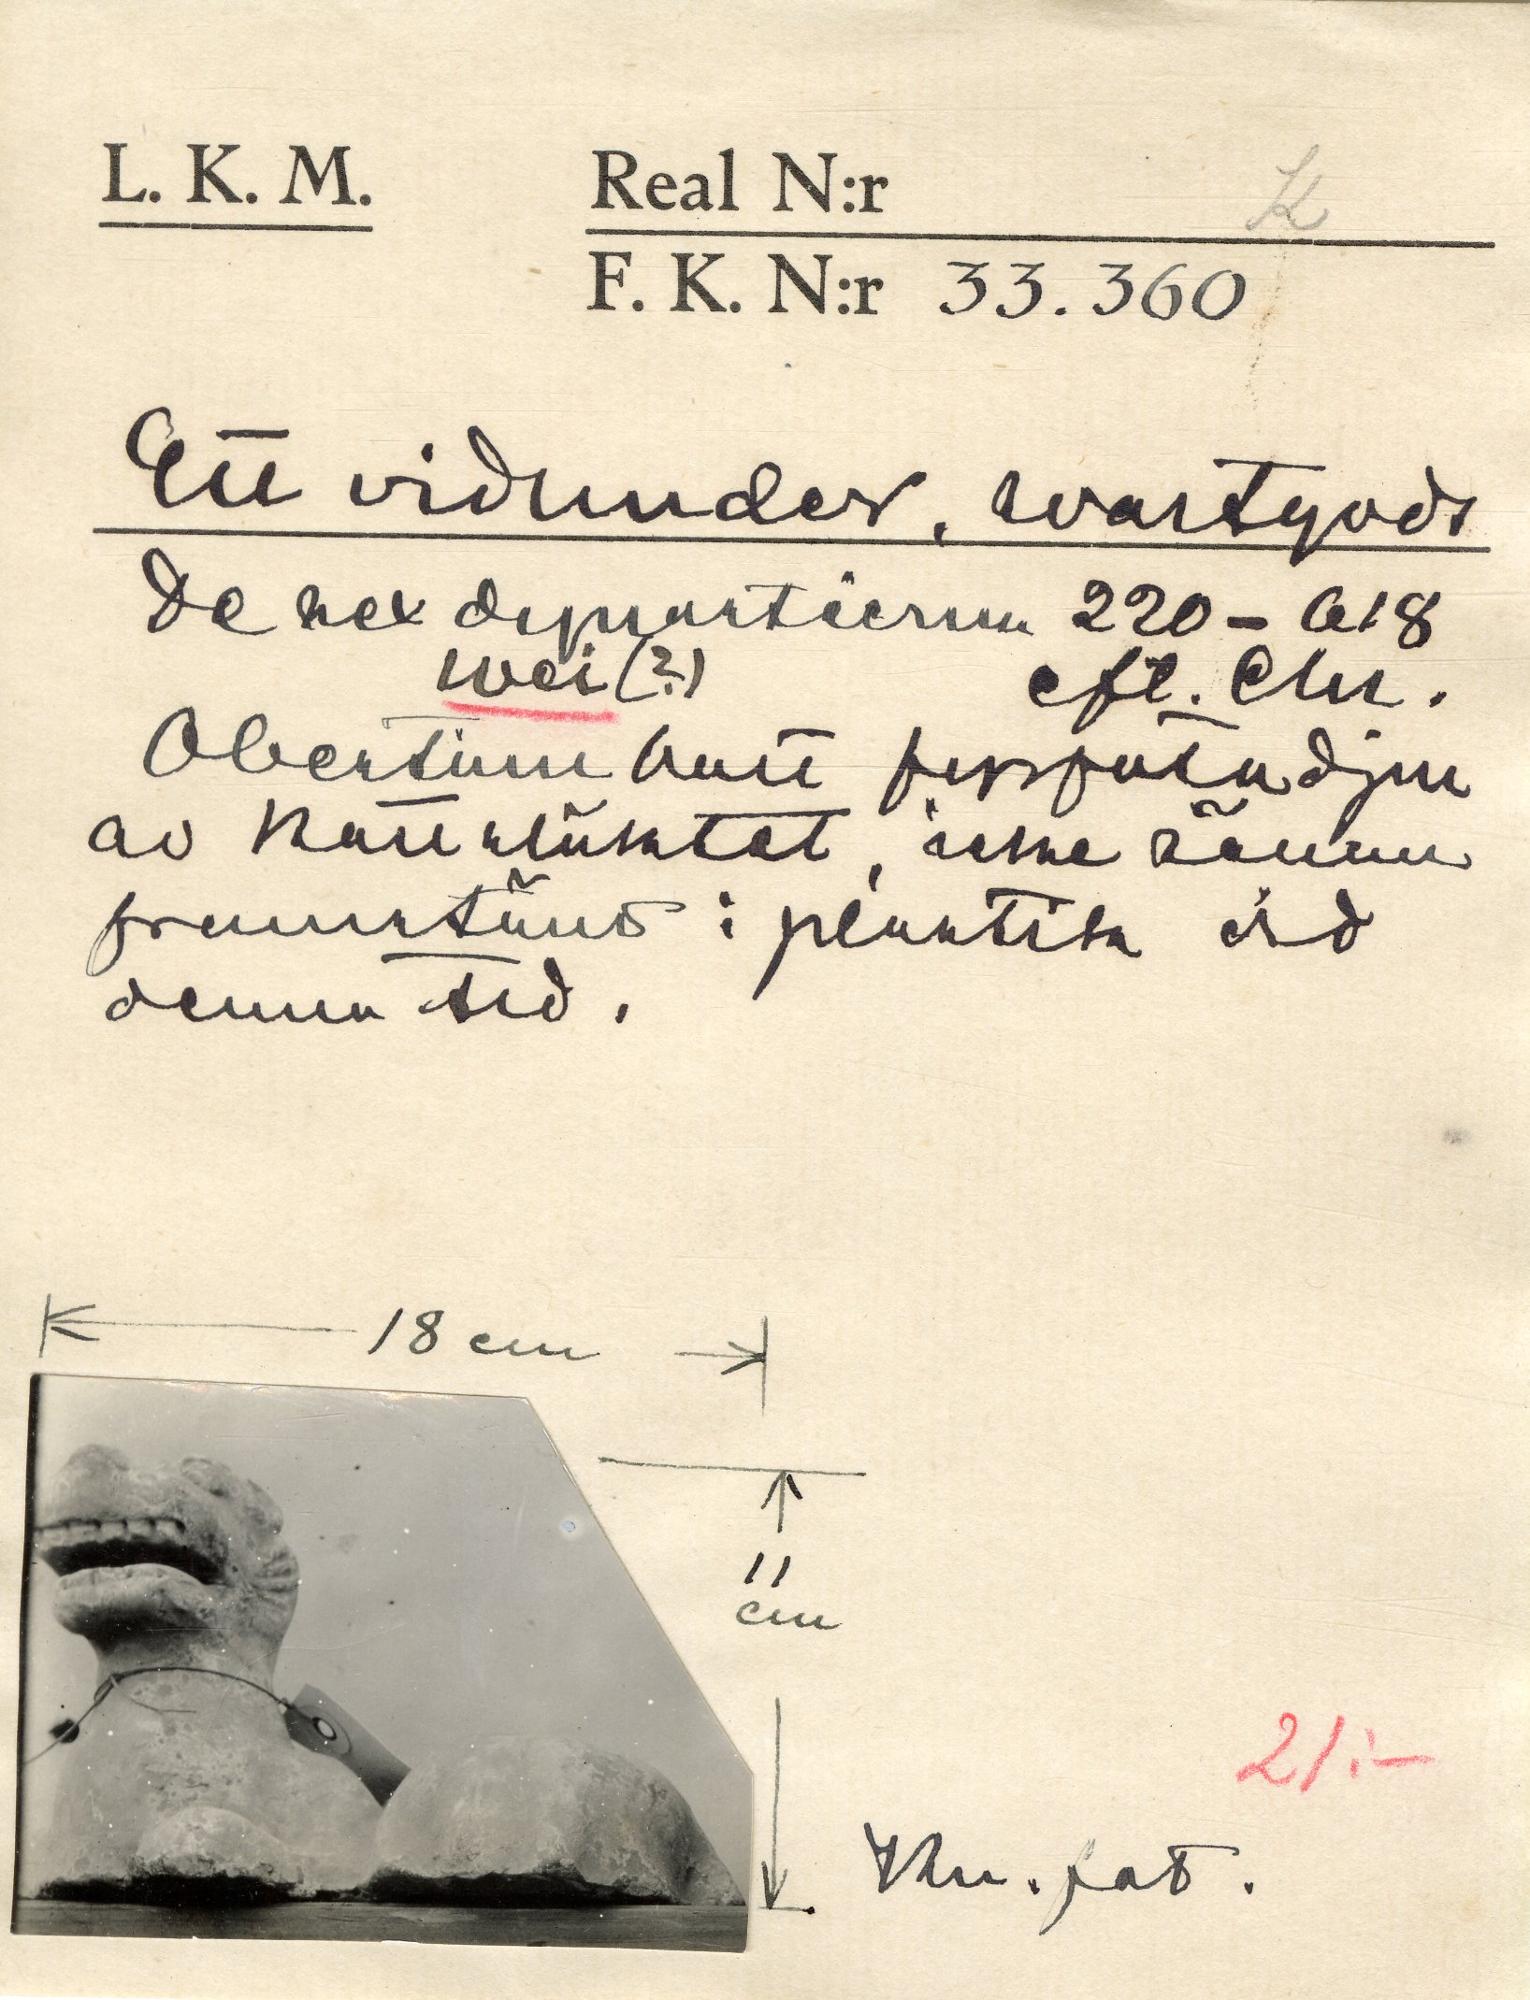 L. K. M.
Real N:r K
F. K. N:r 33.360
Ett vidunder, svartgods
De sex dynastierna 220 – 618
Wei (?) eft. Chr.
Obestämbart fyrfota djur
av kattsläktet, icke sällan
framställt i plastik vid
denna tid.
18 cm
11
cm
21:-